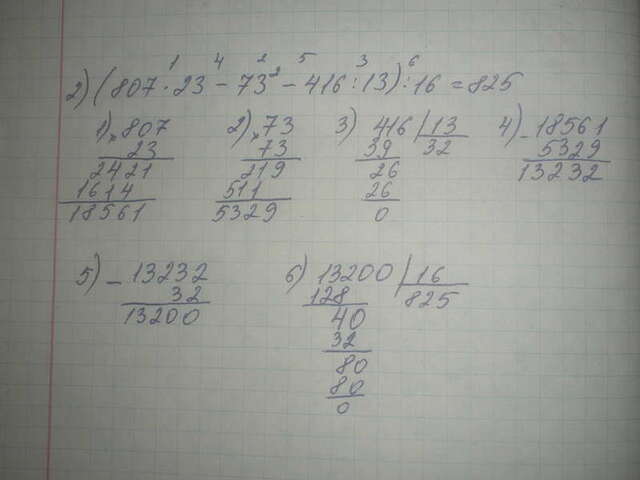 1 4 2 5 3 6
2) (807 · 23 - 73² - 416 : 13) : 16 = 825
1) × 807 2) × 73 3) 416 | 13 4) - 18561
23 73 39 32 5329
2421 219 26 13232
1614 511 26
18561 5329 0
5) - 13232 6) 13200 | 16
32 128 825
13200 40
32
80
80
0